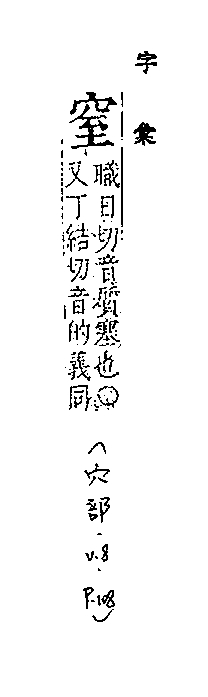 字彙
窒
職日切音質塞也〇
又丁結切音的義同
(穴部.v.8.P.108)